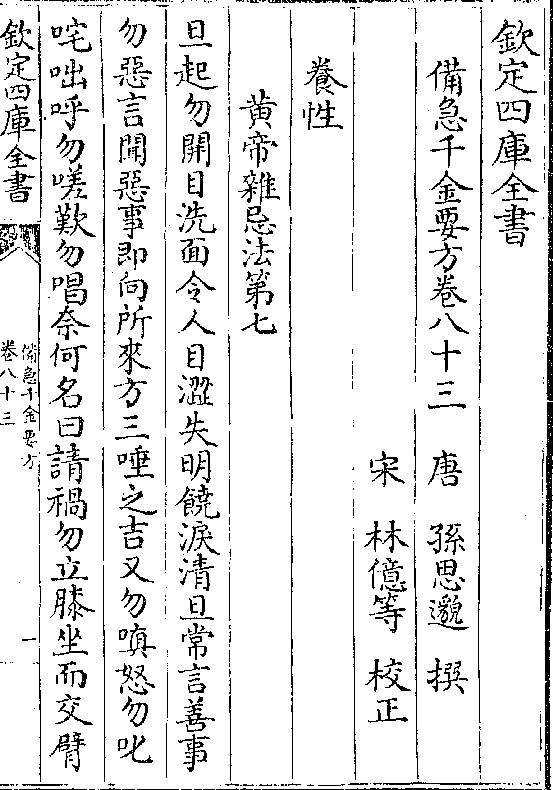 欽定四庫全書
備急千金要方卷八十三 唐 孫思邈 撰
宋 林億等 校正
養性
黄帝雜忌法第七
旦起勿開目洗面令人目澀失明饒淚清旦常言善事
勿惡言聞惡事即向所來方三唾之吉又勿嗔怒勿叱
咤咄呼勿嗟歎勿唱奈何名曰請禍勿立膝坐而交臂
欽定四庫全書
備急千金要方
卷八十三
一